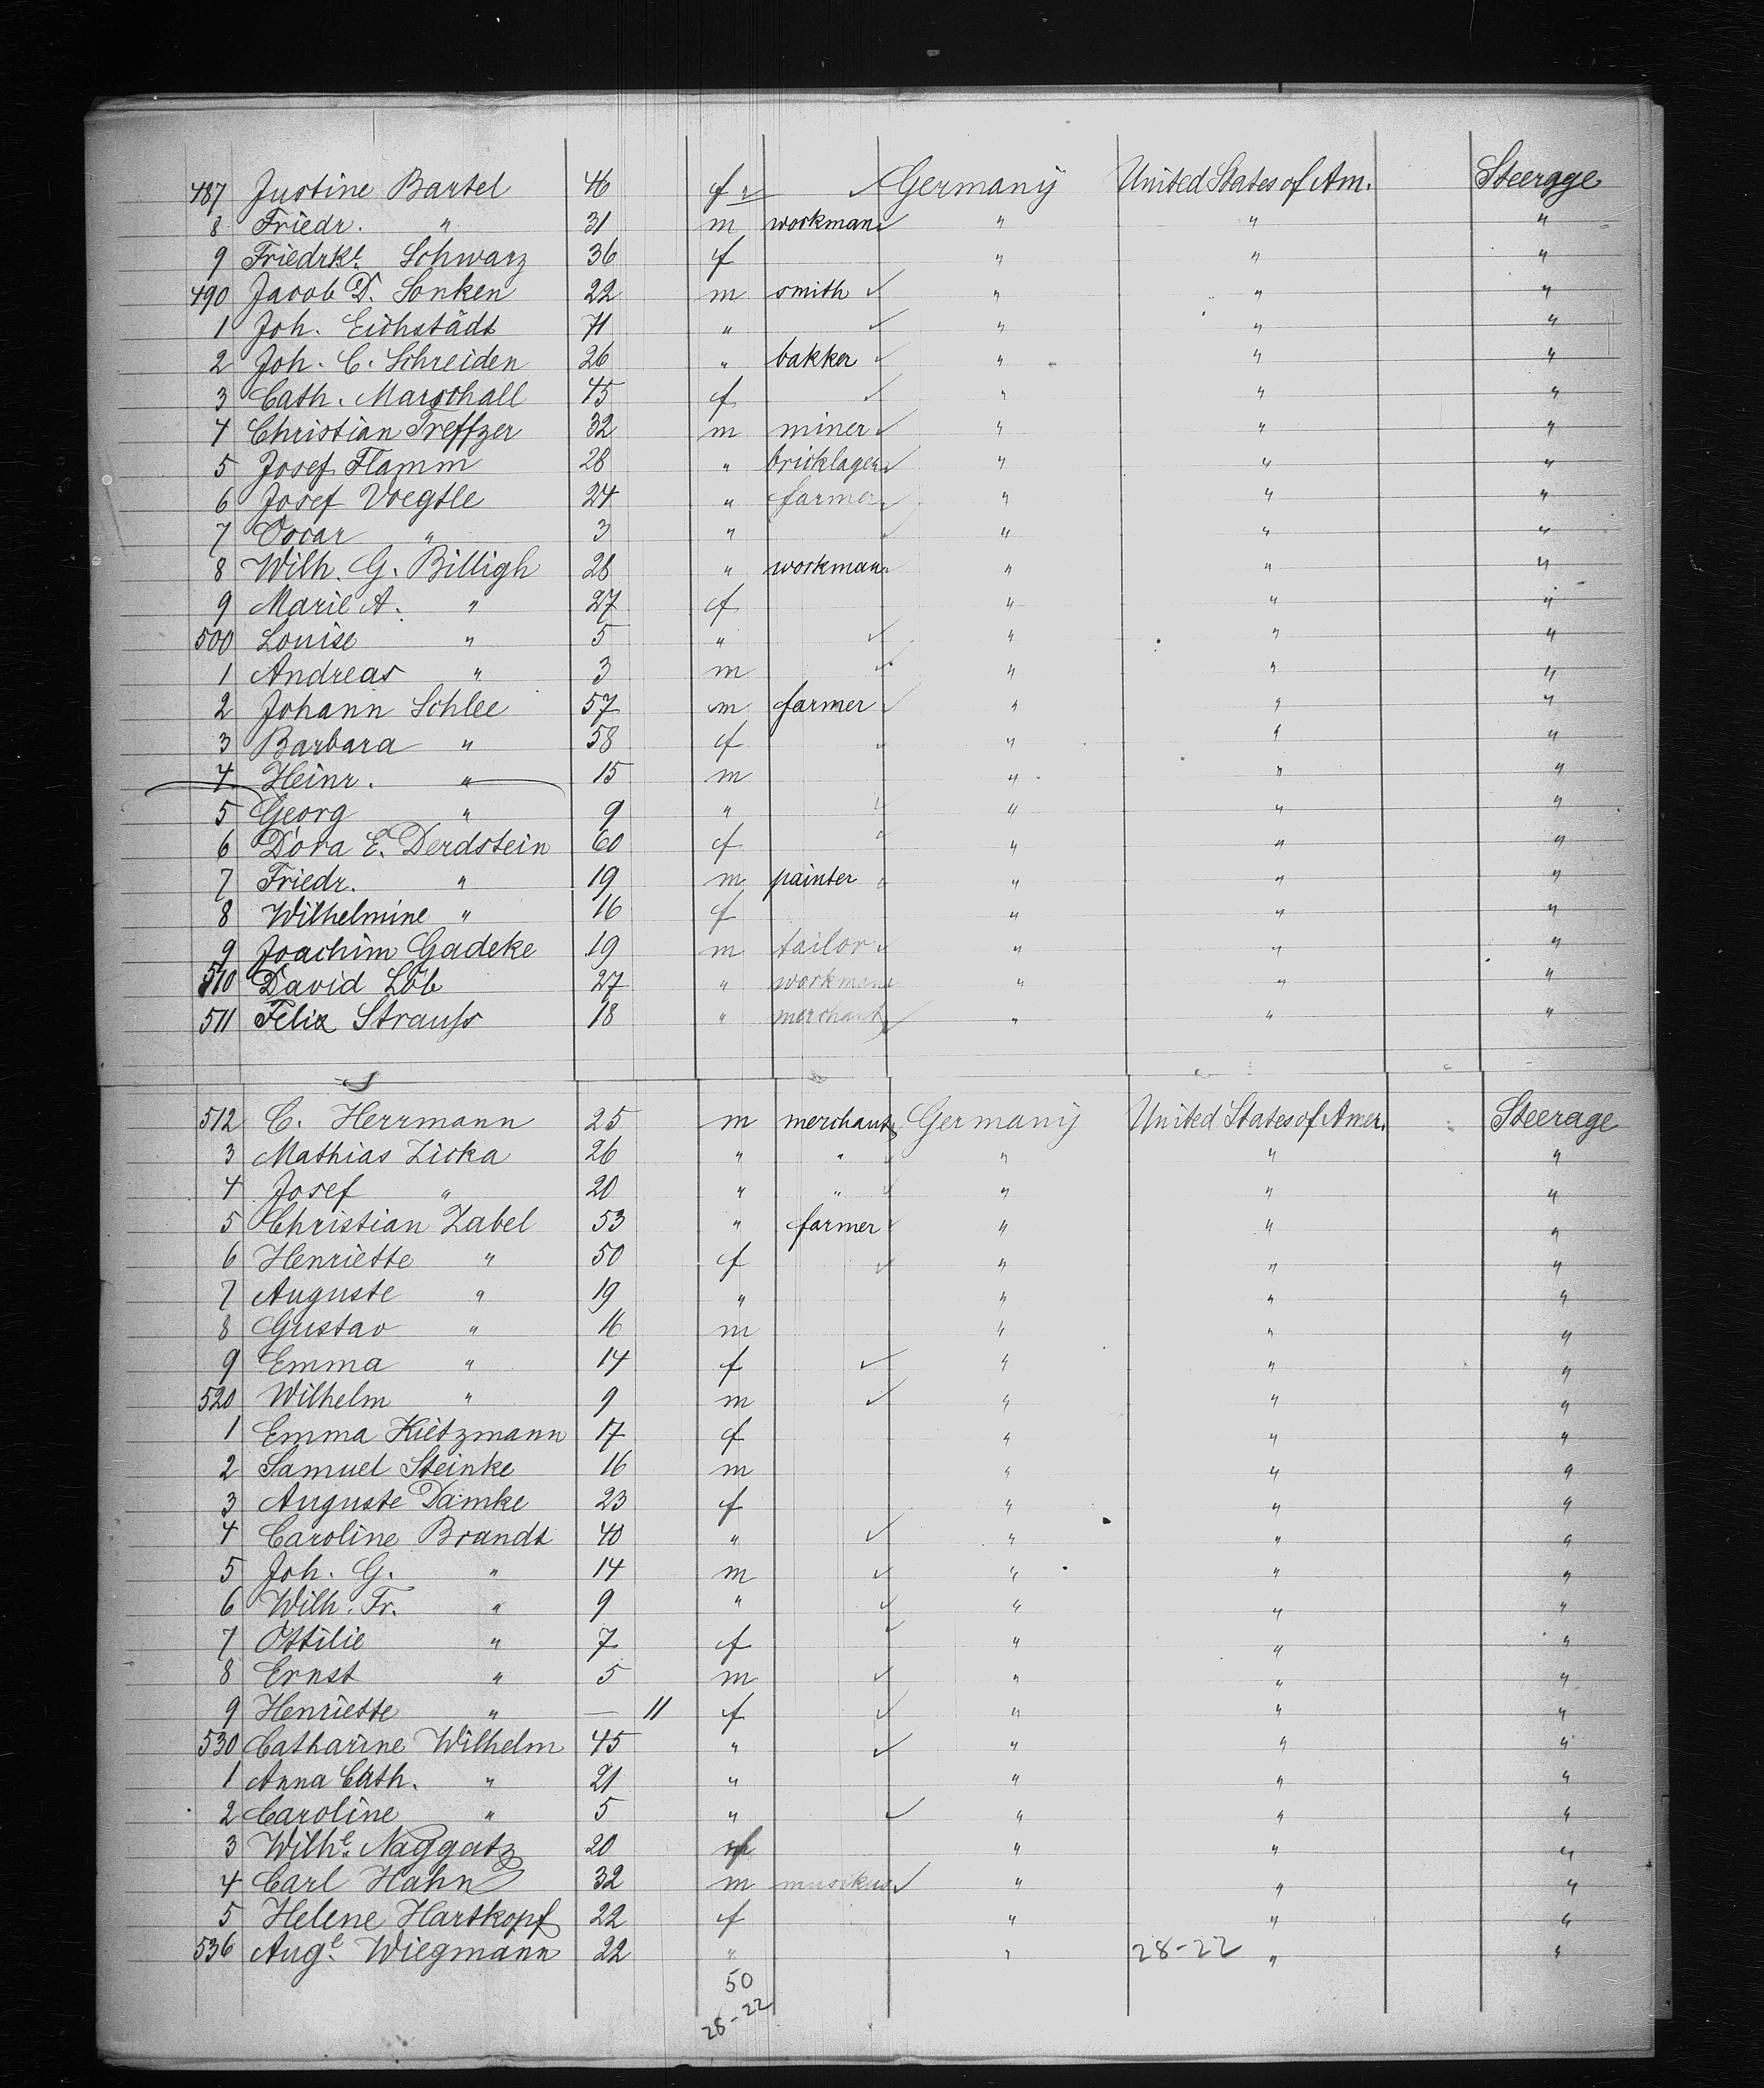 487 Justine Bartel 46 f " Germany United States of Am. Steerage
8 Friedr. " 31 m workman " " "
9 Friedrke. Schwarz 36 f " " "
490 Jacob D. Sonken 22 m smith " " "
1 Joh. Eichstädt 71 " " " "
2 Joh. C. Schreiden 26 " bakker " " "
3 Cath. Marschall 45 f " " "
4 Christian Treffzer 32 m miner " " "
5 Josef Flamm 28 " bricklager " " "
6 Josef Voegtle 24 " farmer " " "
7 Oscar " 3 " " " "
8 Wilh. G. Billigh 28 " workman " " "
9 Marie A. " 27 f " " "
500 Louise " 5 " " " "
1 Andreas " 3 m " " "
2 Johann Schlee 57 m farmer " " "
3 Barbara " 58 f " " "
4 Heinr. " 15 m " " "
5 Georg " 9 " " " "
6 Dora E. Derdstein 60 f " " "
7 Friedr. " 19 m painter " " "
8 Wilhelmine " 16 f " " "
9 Joachim Gadeke 19 m tailor " " "
510 David Löb 27 " workman " " "
511 Felix Strauss 18 " merchant " " "
512 C. Herrmann 25 m merchant Germany United States of Amer. Steerage
3 Mathias Zicka 26 " " " " "
4 Josef " 20 " " " " "
5 Christian Zabel 53 " farmer " " "
6 Henriette " 50 f " " "
7 Auguste " 19 " " " "
8 Gustav " 16 m " " "
9 Emma " 14 f " " "
520 Wilhelm " 9 m " " "
1 Emma Kietzmann 17 f " " "
2 Samuel Steinke 16 m " " "
3 Auguste Damke 23 f " " "
4 Caroline Brandt 40 " " " "
5 Joh. G. " 14 m " " "
6 Wilh. Fr. " 9 " " " "
7 Ottilie " 7 f " " "
8 Ernst " 5 m " " "
9 Henriette " — 11 f " " "
530 Catharine Wilhelm 45 " " " "
1 Anna Cath. " 21 " " " "
2 Caroline " 5 " " " "
3 Wilhe. Naggatz 20 f " " "
4 Carl Hahn 32 m musikus " " "
5 Helene Hartkopf 22 f " " "
536 Auge. Wiegmann 22 " " 28-22 " "
50
28-22